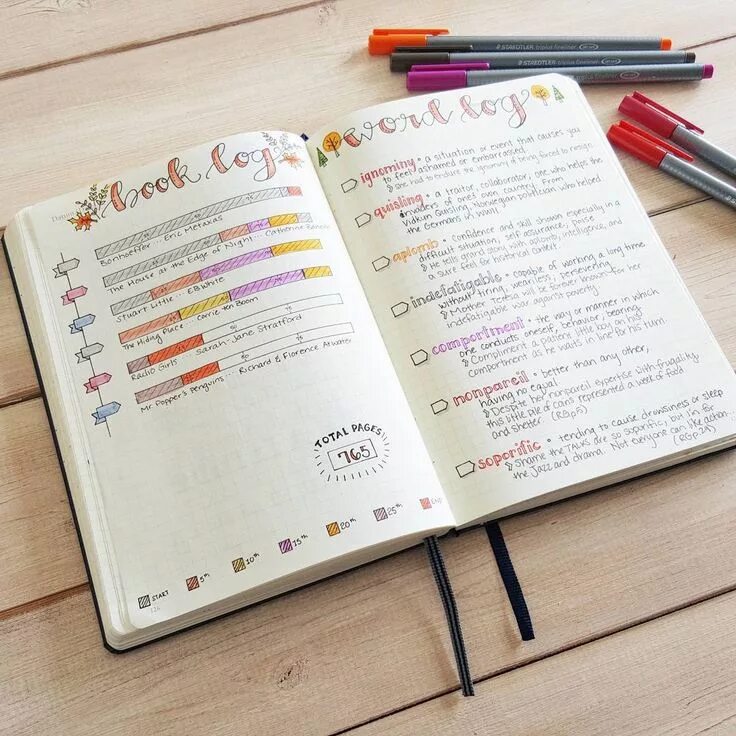 book log
Bonhoeffer... Eric Metaxas
The House at the Edge of Night... Catherine Banner
Stuart Little... EB White
The Hiding Place... Corrie ten Boom
Radio Girls... Sarah-Jane Stratford
Mr. Popper's Penguins... Richard & Florence Atwater
TOTAL PAGES
765
START
5th
10th
15th
20th
25th
END
126
word log
ignominy • a situation or event that causes you
to feel ashamed or embarrassed.
she had to endure the ignominy of being forced to resign
quisling • a traitor, collaborator, one who helps the
invaders of one's own country. From
Vidkun Quisling, Norwegian politician who helped
the Germans in WWII.
aplomb • confidence and skill shown especially in a
difficult situation, self assurance, poise
He tells grand story with aplomb, intelligence, and
a sure feel for historical context.
indefatigable • capable of working a long time
without tiring, unwearied, persevering
Mother Teresa will be forever known for her
indefatigable war against poverty.
comportment • the way or manner in which
one conducts oneself, behavior, bearing
Compliment a patient little boy on his
comportment as he waits in line for his turn.
nonpareil • better than any other,
having no equal
Despite her nonpareil expertise with frugality
this little pile of cans represented a week of food
and shelter.
soporific • tending to cause drowsiness or sleep
Shame the TALKS are so soporific, but I'm for
the Jazz and drama. Not everyone can like action.
STAEDTLER triplus fineliner
STAEDTLER triplus fineliner
STAEDTLER triplus fineliner